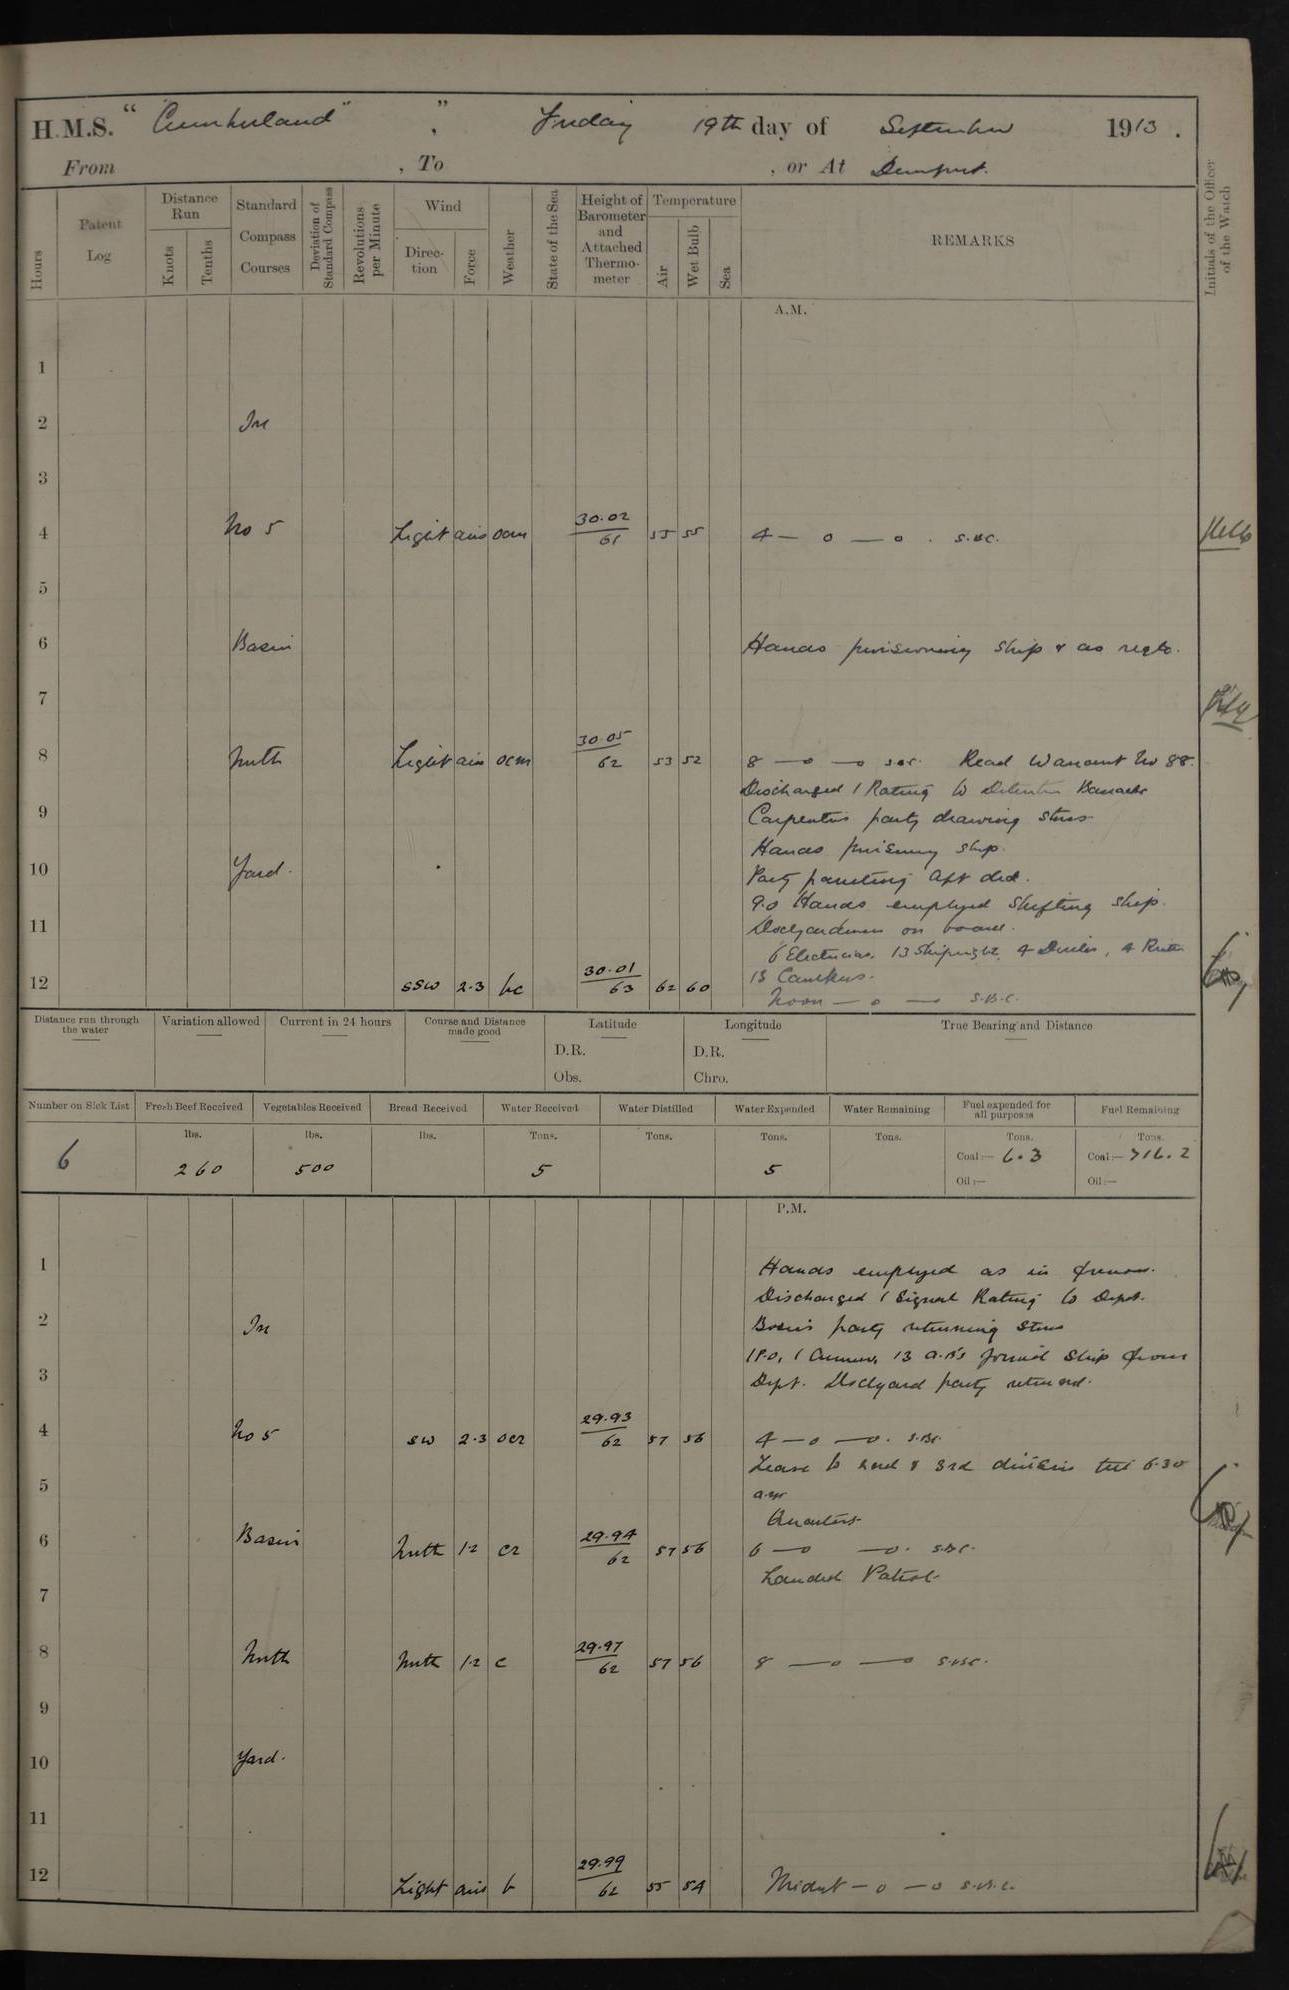 H.M.S. "Cumberland", Friday 19th day of September 1913.
From , To , or At Devonport.
Hours
Patent Log
Distance Run
Knots
Tenths
Standard Compass Courses
Deviation of Standard Compass
Revolutions per Minute
Wind
Direction
Force
Weather
State of the Sea
Height of Barometer and Attached Thermometer
Temperature
Air
Wet Bulb
Sea
REMARKS
Initials of the Officer of the Watch
A.M.
1
2 In
3
4 No 5 Light airs ocm 30.02 61 55 55 4 — o — o . S.B.C.
5
6 Basin Hands provisioning ship & as reqte.
7
8 North Light airs ocm 30.05 62 53 52 8 — o — o S.B.C. Read Warrant No 88.
Discharged 1 Rating to Detention Barracks
9 Carpenters party drawing stores
Hands provisiong ship.
10 Yard. Party painting aft deck.
9.0 Hands employed shifting ship.
11 Dockyardmen on board.
6 Electricians, 13 Shipwright, 4 Drillers, 4 Riveters
12 SSW 2.3 bc 30.01 63 62 60 13 Caulkers.
Noon — o — S.B.C.
Distance run through the water
Variation allowed
Current in 24 hours
Course and Distance made good
Latitude
D.R.
Obs.
Longitude
D.R.
Chro.
True Bearing and Distance
Number on Sick List
Fresh Beef Received
Vegetables Received
Bread Received
Water Received
Water Distilled
Water Expended
Water Remaining
Fuel expended for all purposes
Fuel Remaining
lbs. lbs. lbs. Tons. Tons. Tons. Tons. Tons. Tons.
6 260 500 5 5 Coal:— 6.3 Coal:— 716.2
Oil:— Oil:—
P.M.
1 Hands employed as in forenoon.
Discharged 1 Signal Rating to Depot.
2 In Bosuns party returning stores
1 P.O, 1 Armourer, 13 A.B's joined ship from
3 Depot. Dockyard party returned.
4 No 5 SW 2.3 ocr 29.93 62 57 56 4 — o — o. S.B.C.
Leave to 2nd & 3rd divisions till 6.30
5 am
Quarters
6 Basin North 1.2 cr 29.94 62 57 56 6 — o — o. S.B.C.
Landed Patrol
7
8 North North 1.2 c 29.97 62 57 56 8 — o — o S.B.C.
9
10 Yard.
11
12 Light airs b 29.99 62 55 54 Midnt — o — o S.B.C.